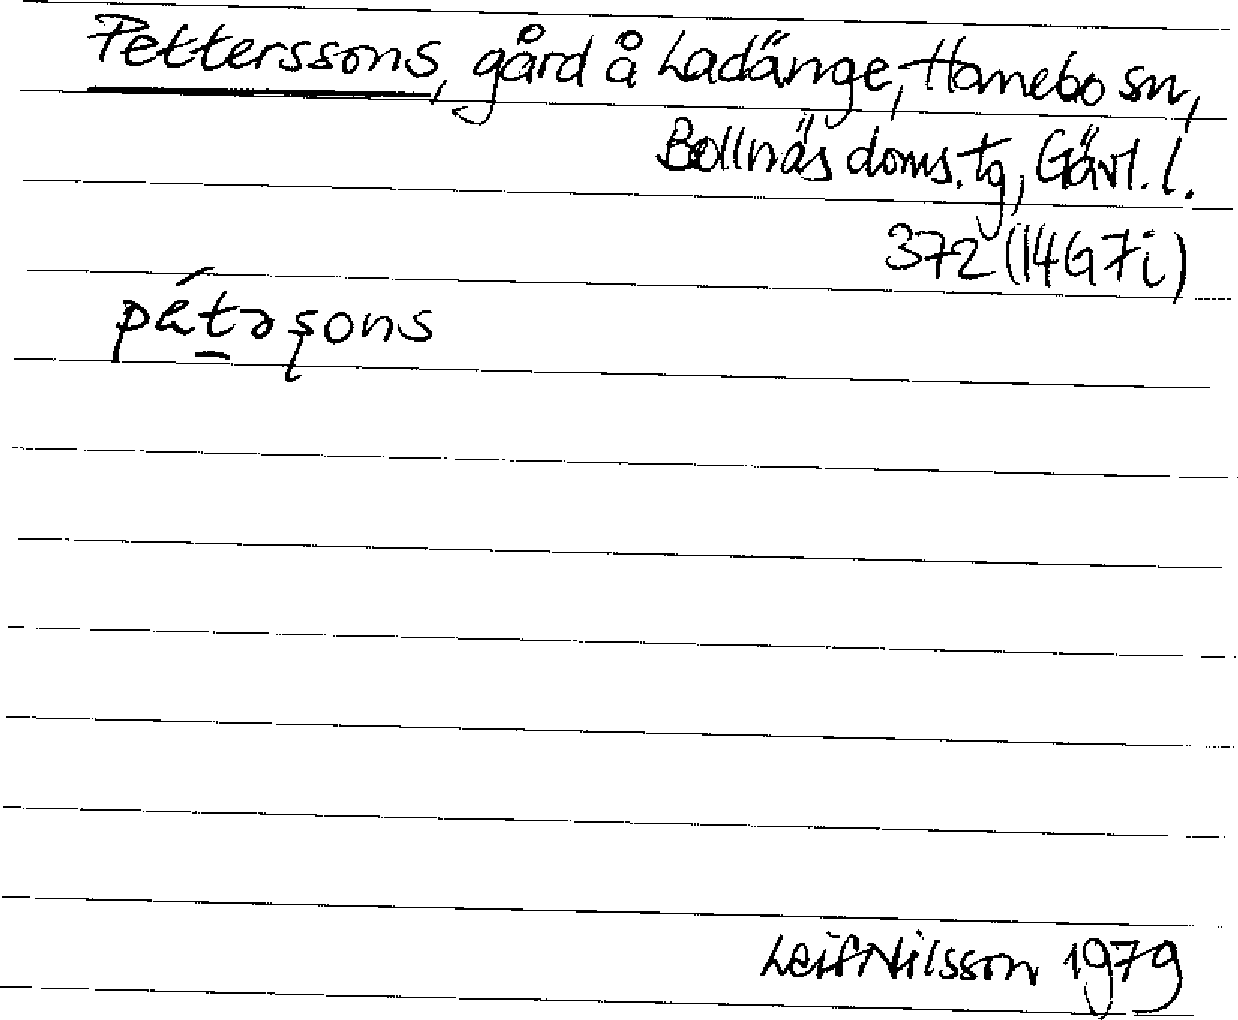 Petterssons, gård å Ladänge, Hanebo sn,
Bollnäs doms.tg, Gävl. l.
372 (14G7i)
pét̲əʂons
Leif Nilsson 1979